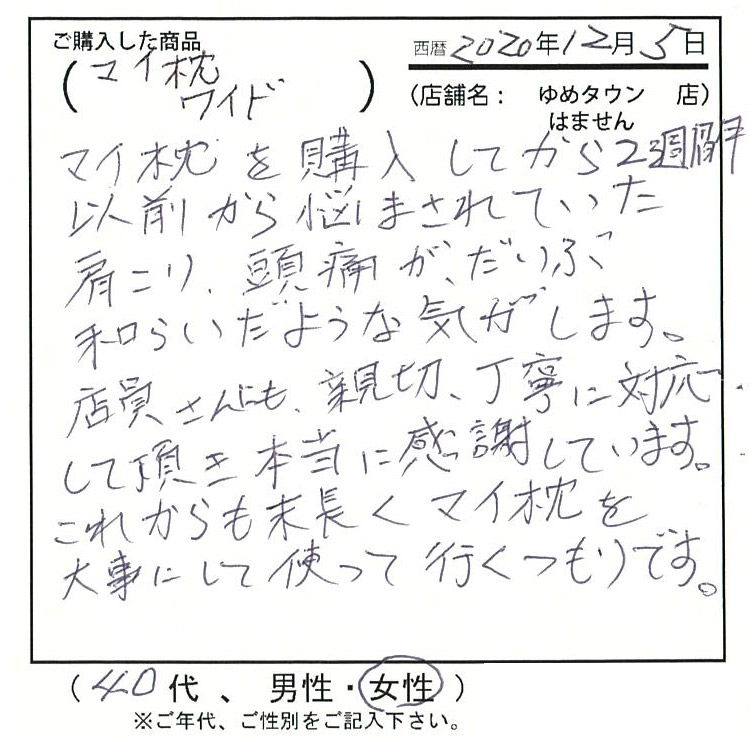 ご購入した商品
(マイ枕
ワイド)
西暦2020年12月5日
(店舗名: ゆめタウン 店)
はません
マイ枕を購入してから2週間半
以前から悩まされていた
肩こり、頭痛が、だいぶ
和らいだような気がします。
店員さんにも、親切、丁寧に対応
して頂き本当に感謝しています。
これからも末長くマイ枕を
大事にして使って行くつもりです。
(40代、男性・女性)
※ご年代、ご性別をご記入下さい。